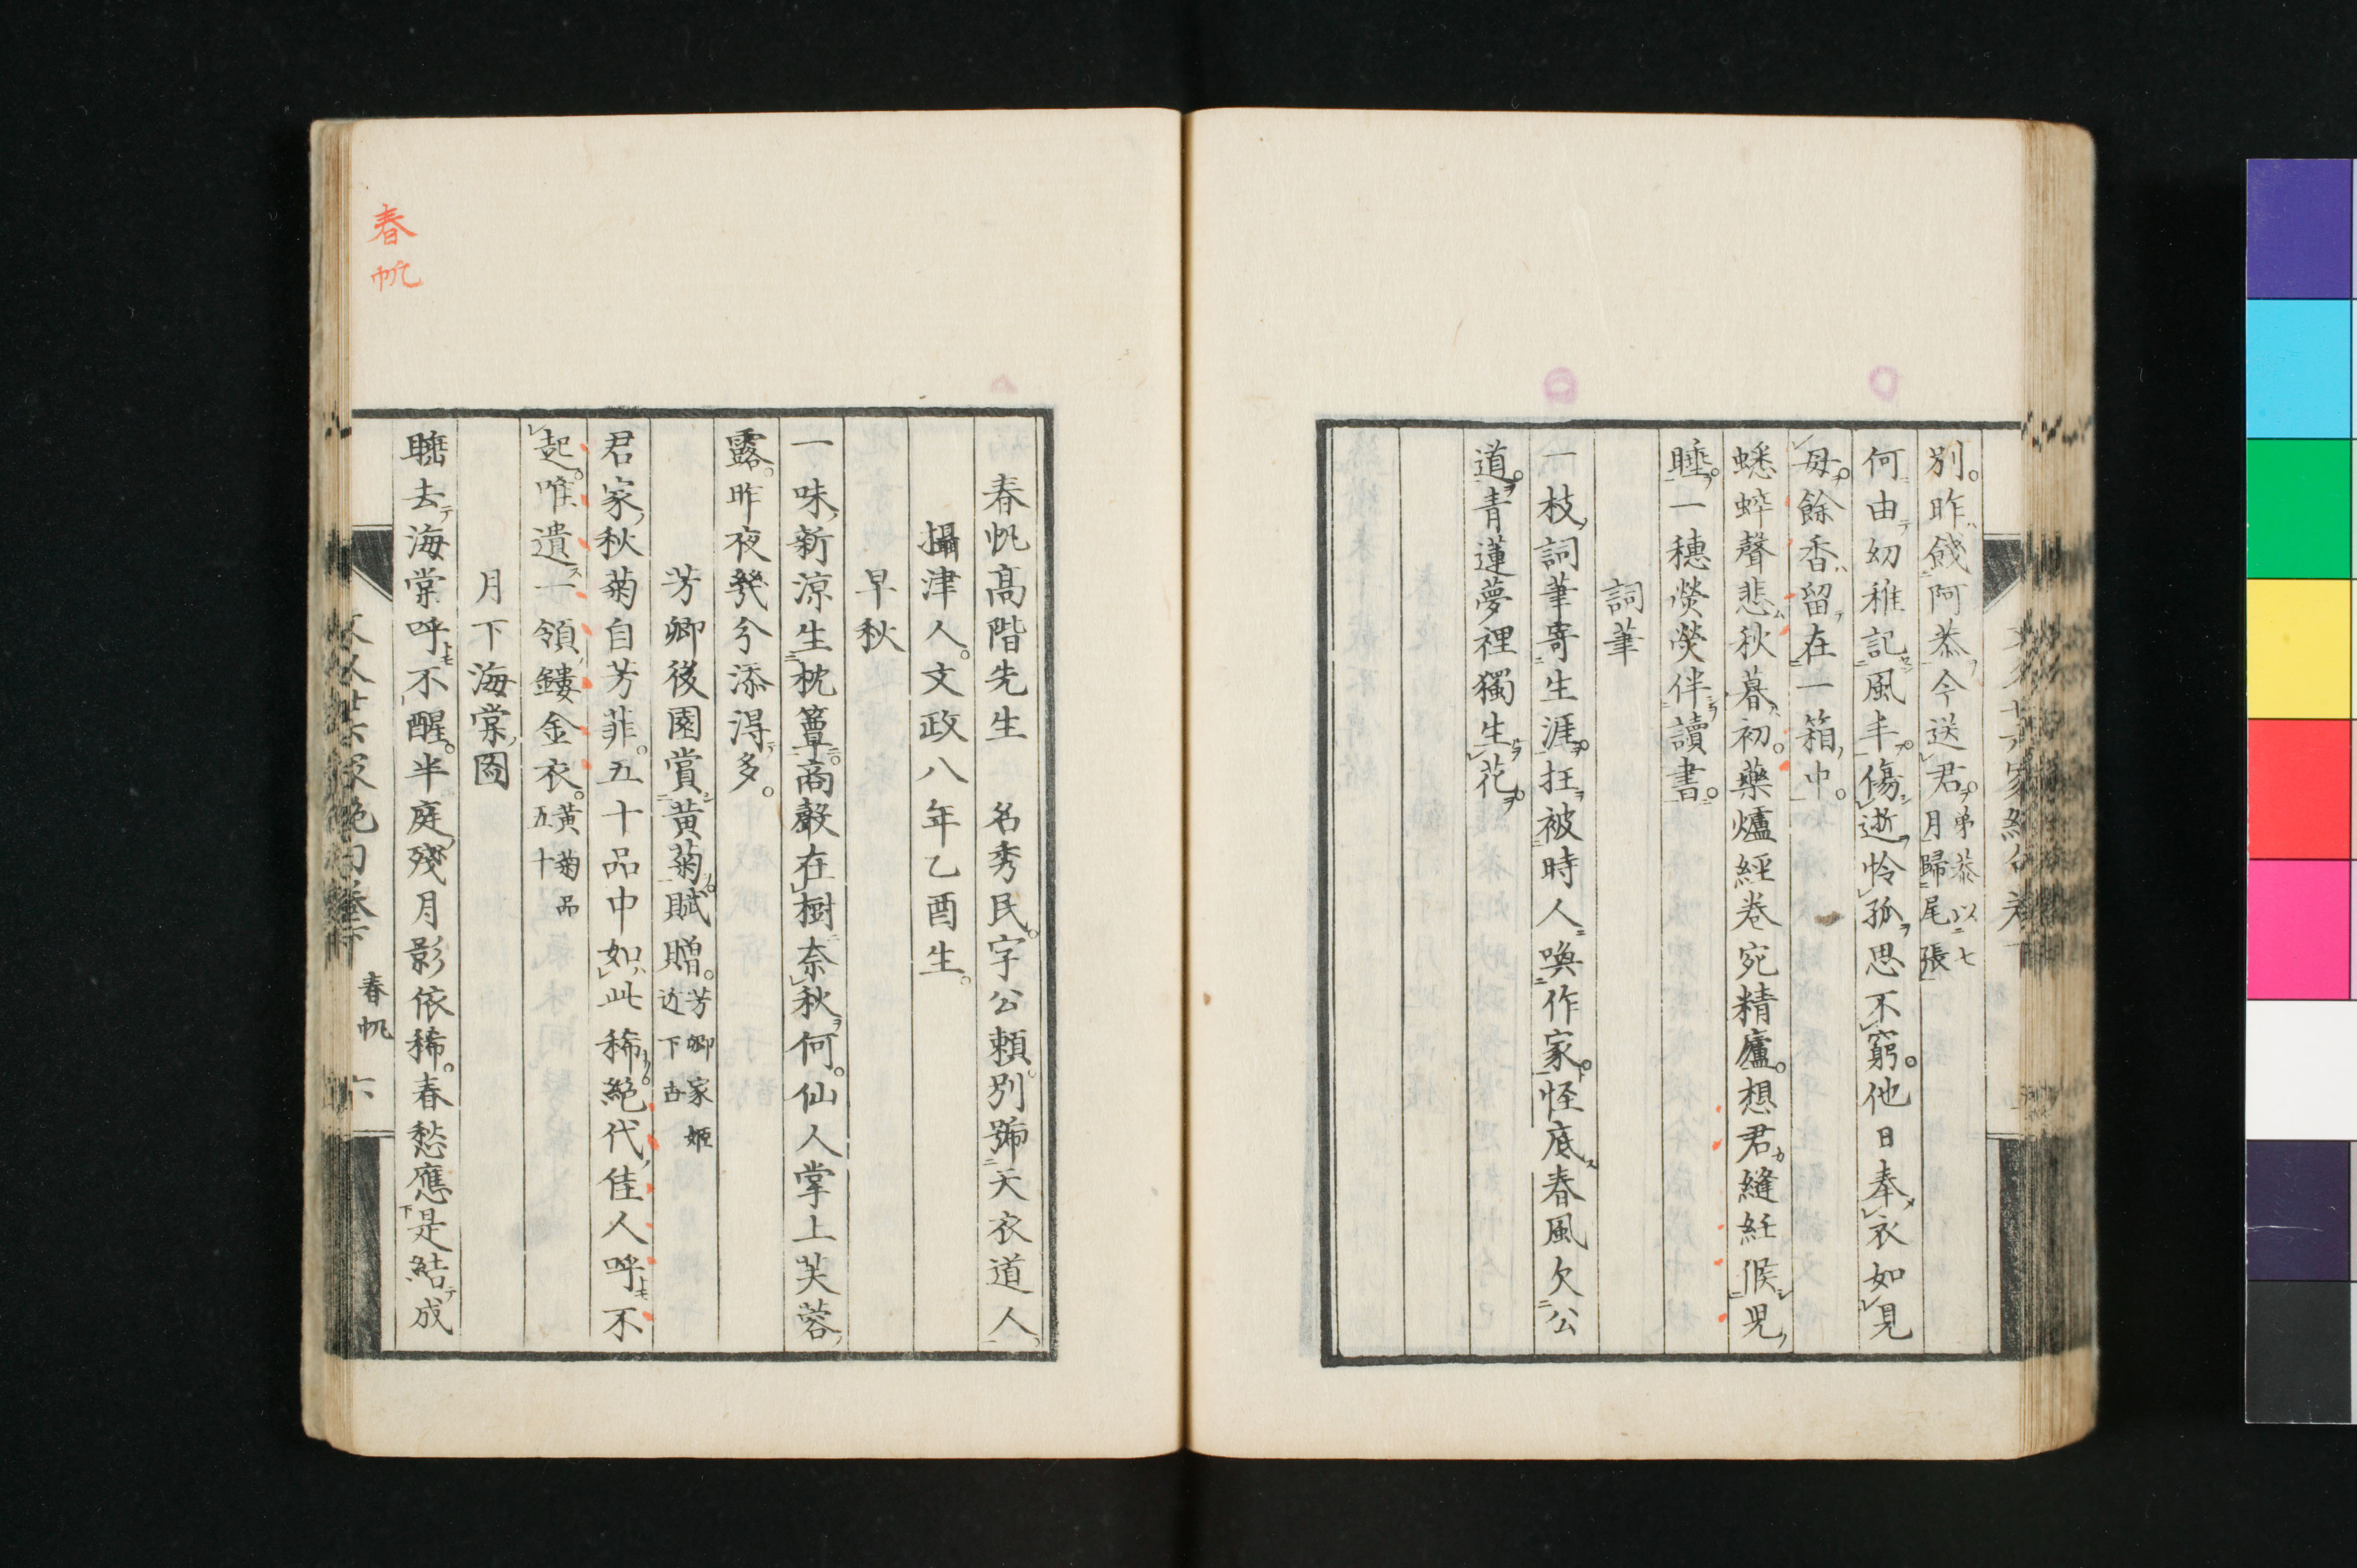 別。昨餞阿恭今送君。弟恭以七
月歸尾張
何由幼稚記風丰。傷逝怜孤思不窮。他日奉衣如見
母。餘香留在一箱中。
蟋蟀聲悲秋暮初。藥爐經卷宛精廬。想君縫紝候兒
睡。一穗熒熒伴讀書。
詞筆
一枝詞筆寄生涯。枉被時人喚作家。怪底春風欠公
道。青蓮夢裡獨生花。
春帆
春帆高階先生 名秀民。字公賴。別號天衣道人。
攝津人。文政八年乙酉生。
早秋
一味新涼生枕簟。商聲在樹奈秋何。仙人掌上芙蓉
露。昨夜幾分添得多。
芳卿後園賞黃菊。賦贈。芳卿家姬
近下古
君家秋菊自芳菲。五十品中如此稀。絕代佳人呼不
起。唯遺一領鏤金衣。黃菊品
五十
月下海棠圖
睡去海棠呼不醒。半庭殘月影依稀。春愁應是結成
春帆 六